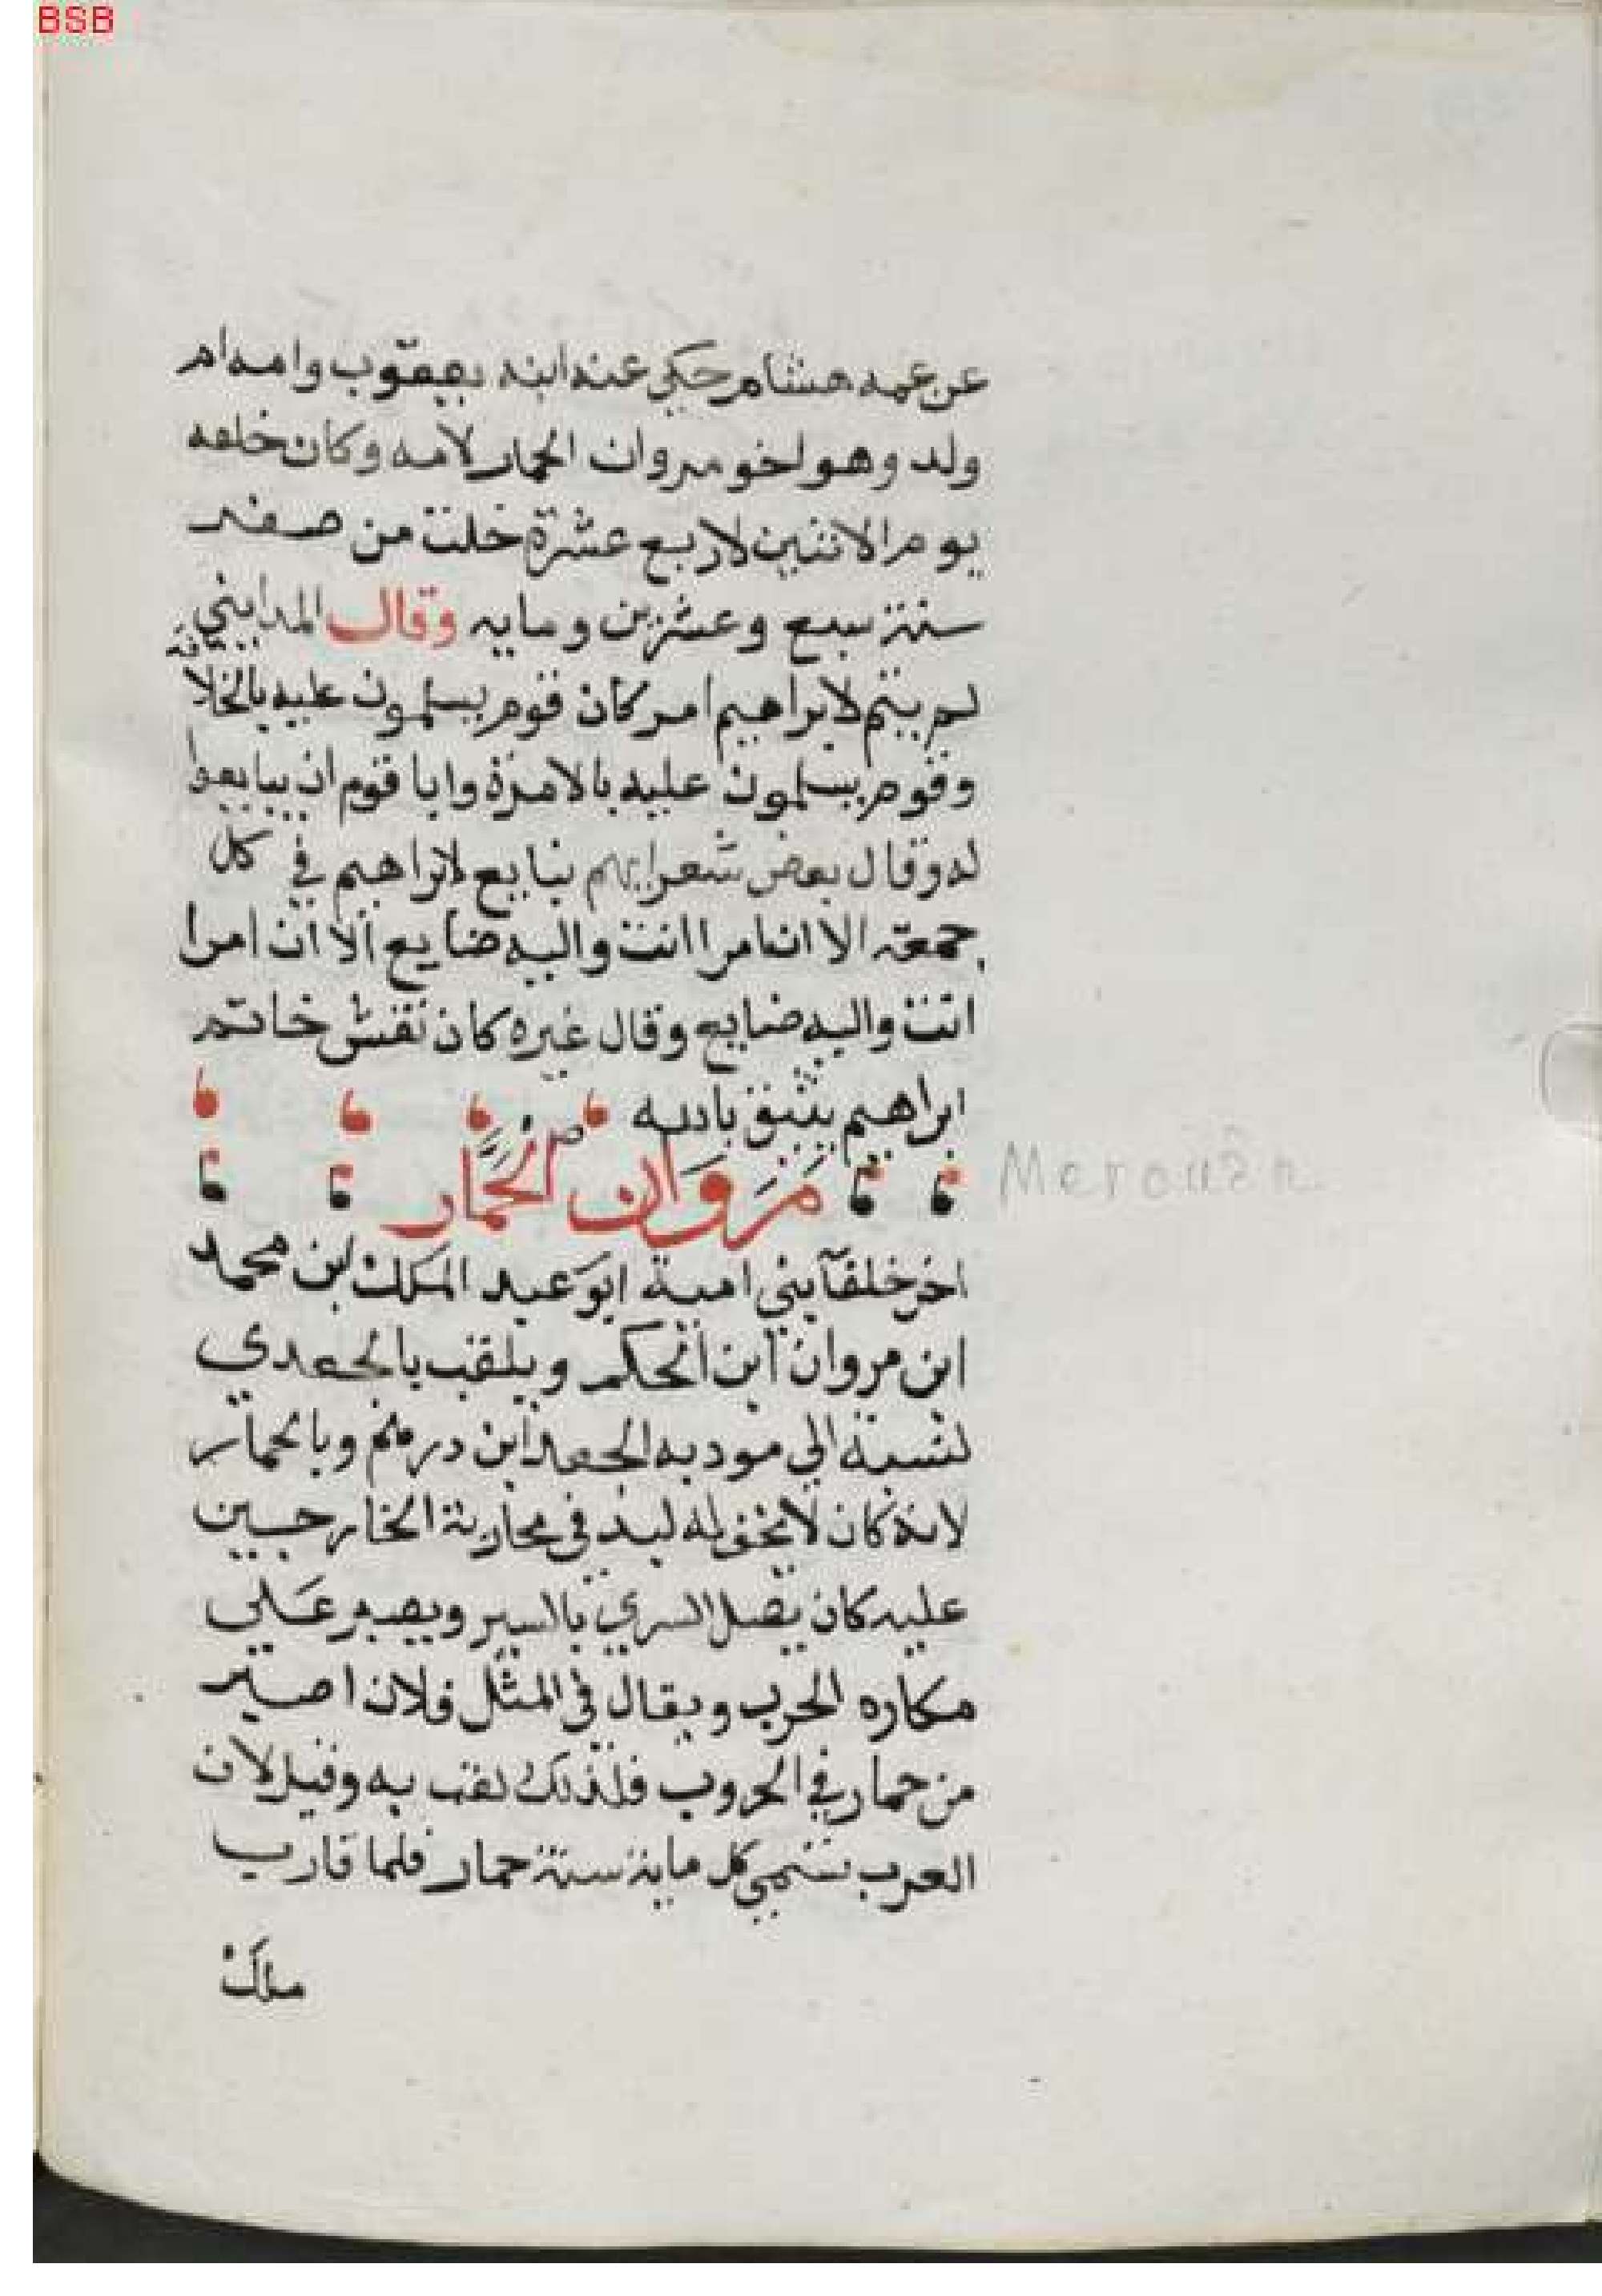 BSB
عن عمه هشام حكي عنه ابنه يعقوب وامه ام
ولد وهو اخو مروان الحمار لامه وكان خلعه
يوم الاثنين لاربع عشرة خلت من صفر
سنة سبع وعشرين ومايه وقال المدايني
لم يتم لابراهيم امر كان قوم يسلمون عليه بالخلافة
وقوم يسلمون عليه بالامرة وابا قوم ان يبايعوا
له وقال بعض شعرايهم نبايع لابراهيم في كل
جمعة الا ان امرا انت واليه ضايع الا ان امرا
انت واليه ضايع وقال غيره كان نقش خاتم
ابراهيم يثق بالله
مروان الحمار
Merouan
اخر خلفآ بني امية ابو عبد الملك ابن محمد
ابن مروان ابن الحكم ويلقب بالجعدي
لنسبة الي مودبه الجعد ابن درهم وبالحمار
لانه كان لا يخف له لبد في محاربة الخارجيين
عليه كان يصل السري بالسير ويصبر علي
مكاره الحرب ويقال في المثل فلان اصبر
من حمار في الحروب فلذلك لقب به وقيل لان
العرب تسمي كل ماية سنة حمار فلما قارب
ملك